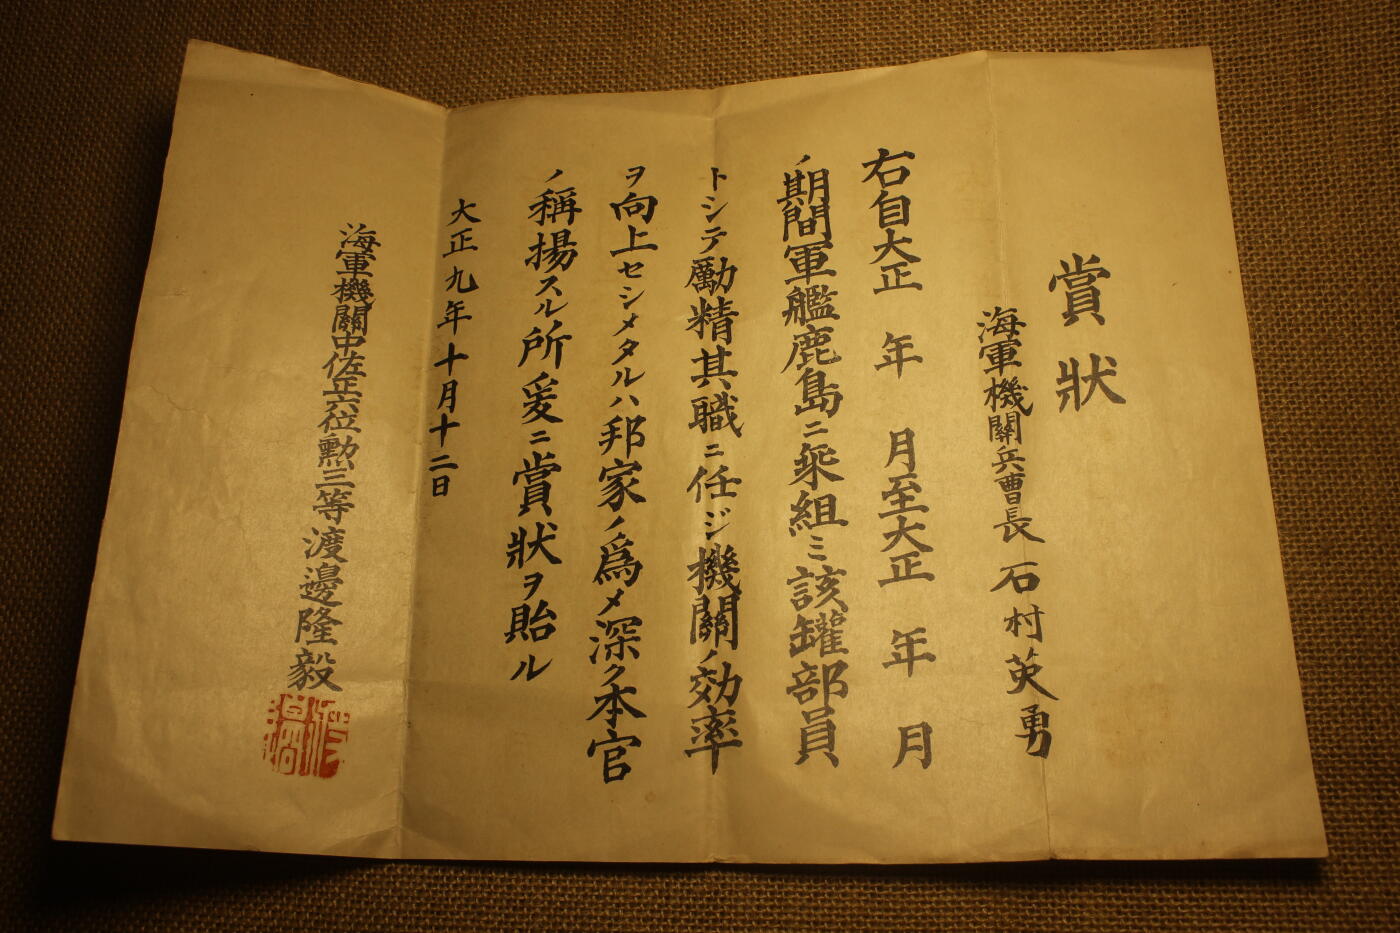 賞狀
海軍機關兵曹長 石村英勇
右自大正 年 月至大正 年 月
ノ期間軍艦鹿島ニ乘組ミ該罐部員
トシテ勵精其職ニ任ジ機關ノ効率
ヲ向上セシメタルハ邦家ノ爲メ深ク本官
ノ稱揚スル所爰ニ賞狀ヲ貽ル
大正九年十月十二日
海軍機關中佐正六位勳三等渡邊隆毅